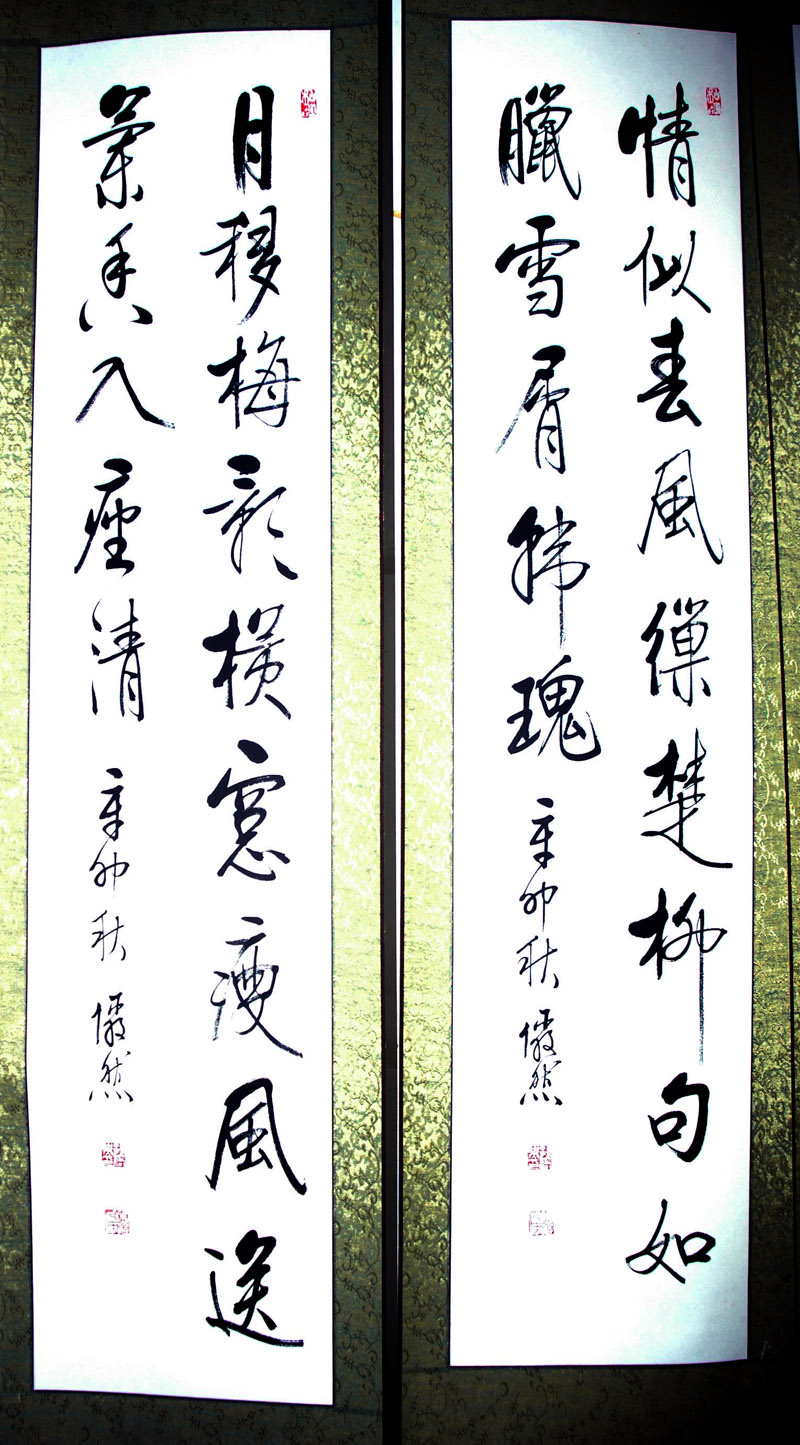 情似春風楚柳句如
臘雪屑韓瑰 辛卯秋 儼然
月移梅影橫窻瘦風送
蘭香入座清 辛卯秋 儼然